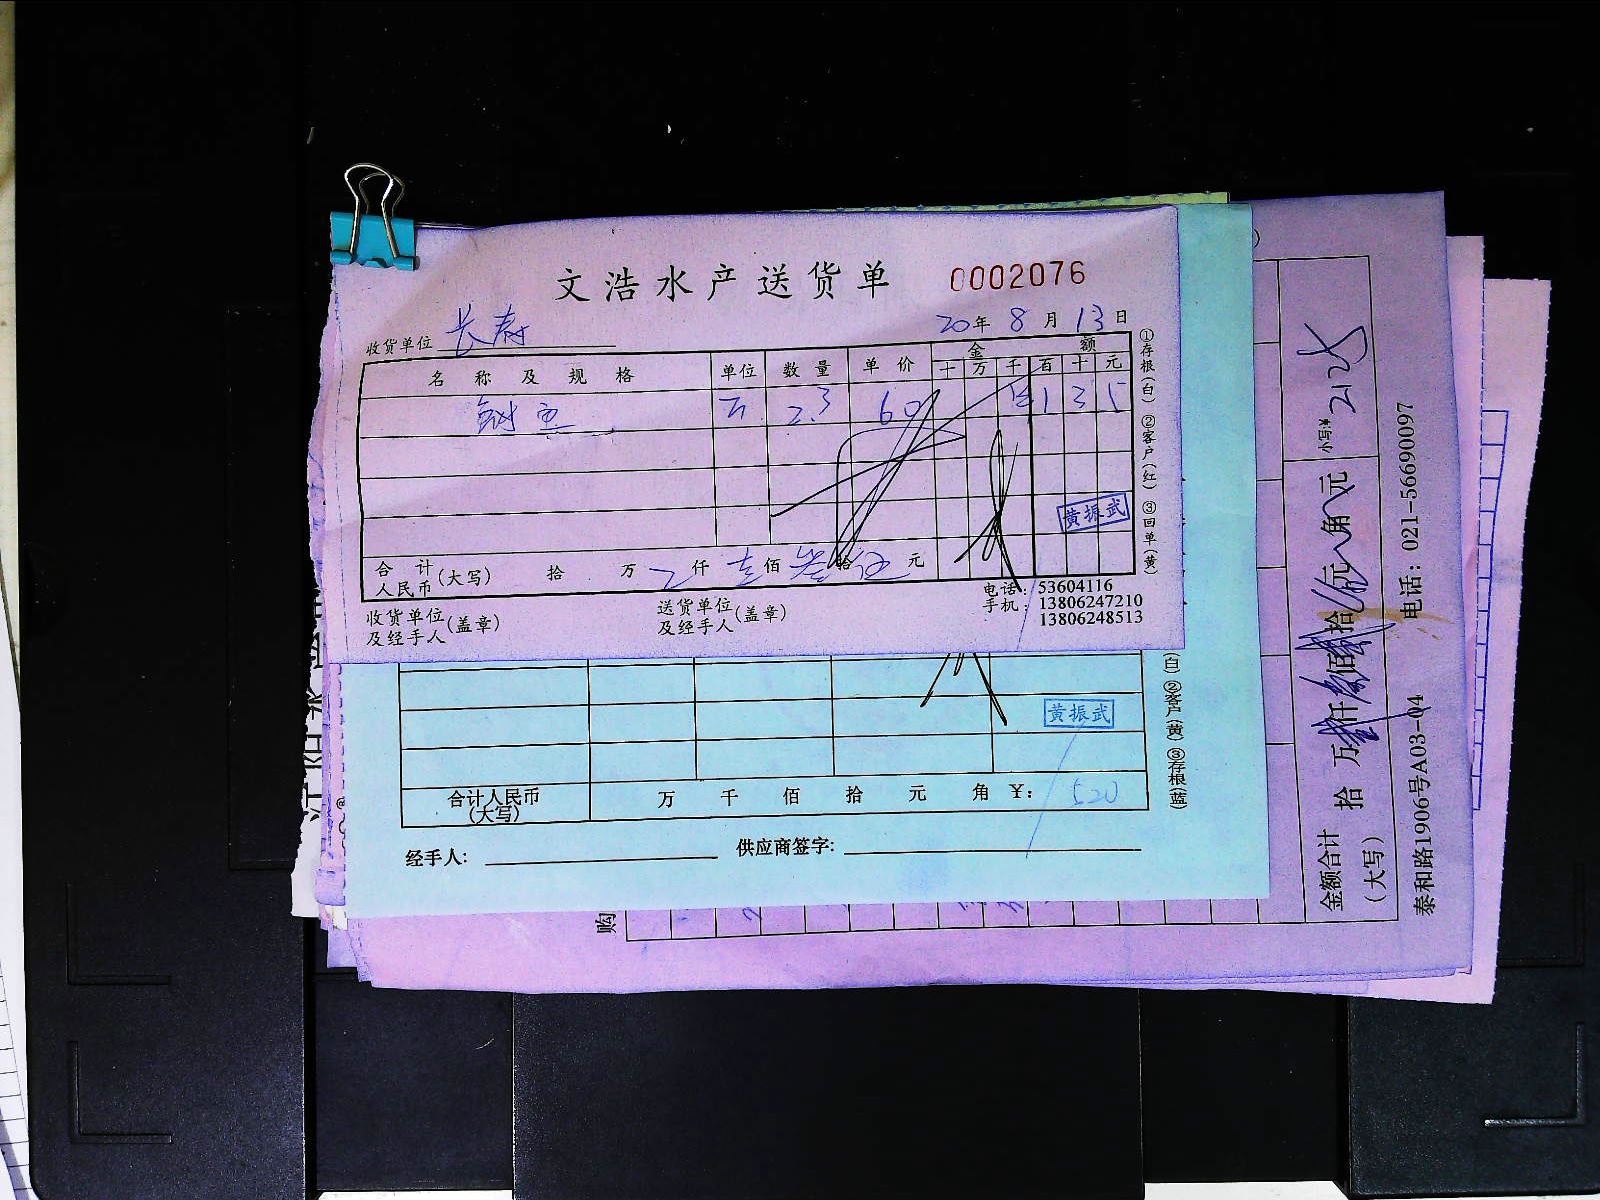 文浩水产送货单 0002076
收货单位 长寿 20年 8 月 13 日
名称及规格 单位 数量 单价 金额
十 万 千 百 十 元
鱼 斤 2.3 60 1 3 5
①存根(白) ②客户(红) ③回单(黄)
黄振武
合计人民币(大写) 拾 万 仟 壹 佰 叁 拾 伍 元
收货单位及经手人(盖章) 送货单位及经手人(盖章)
电话: 53604116
手机: 13806247210
13806248513
黄振武
合计人民币(大写) 万 千 佰 拾 元 角 ¥: 520
白) ②客户(黄) ③存根(蓝)
经手人: 供应商签字:
购
金额合计(大写) 拾 万 仟 佰 拾 元 角 元 小写:¥ 2125
泰和路1906号A03-04 电话: 021-56690097